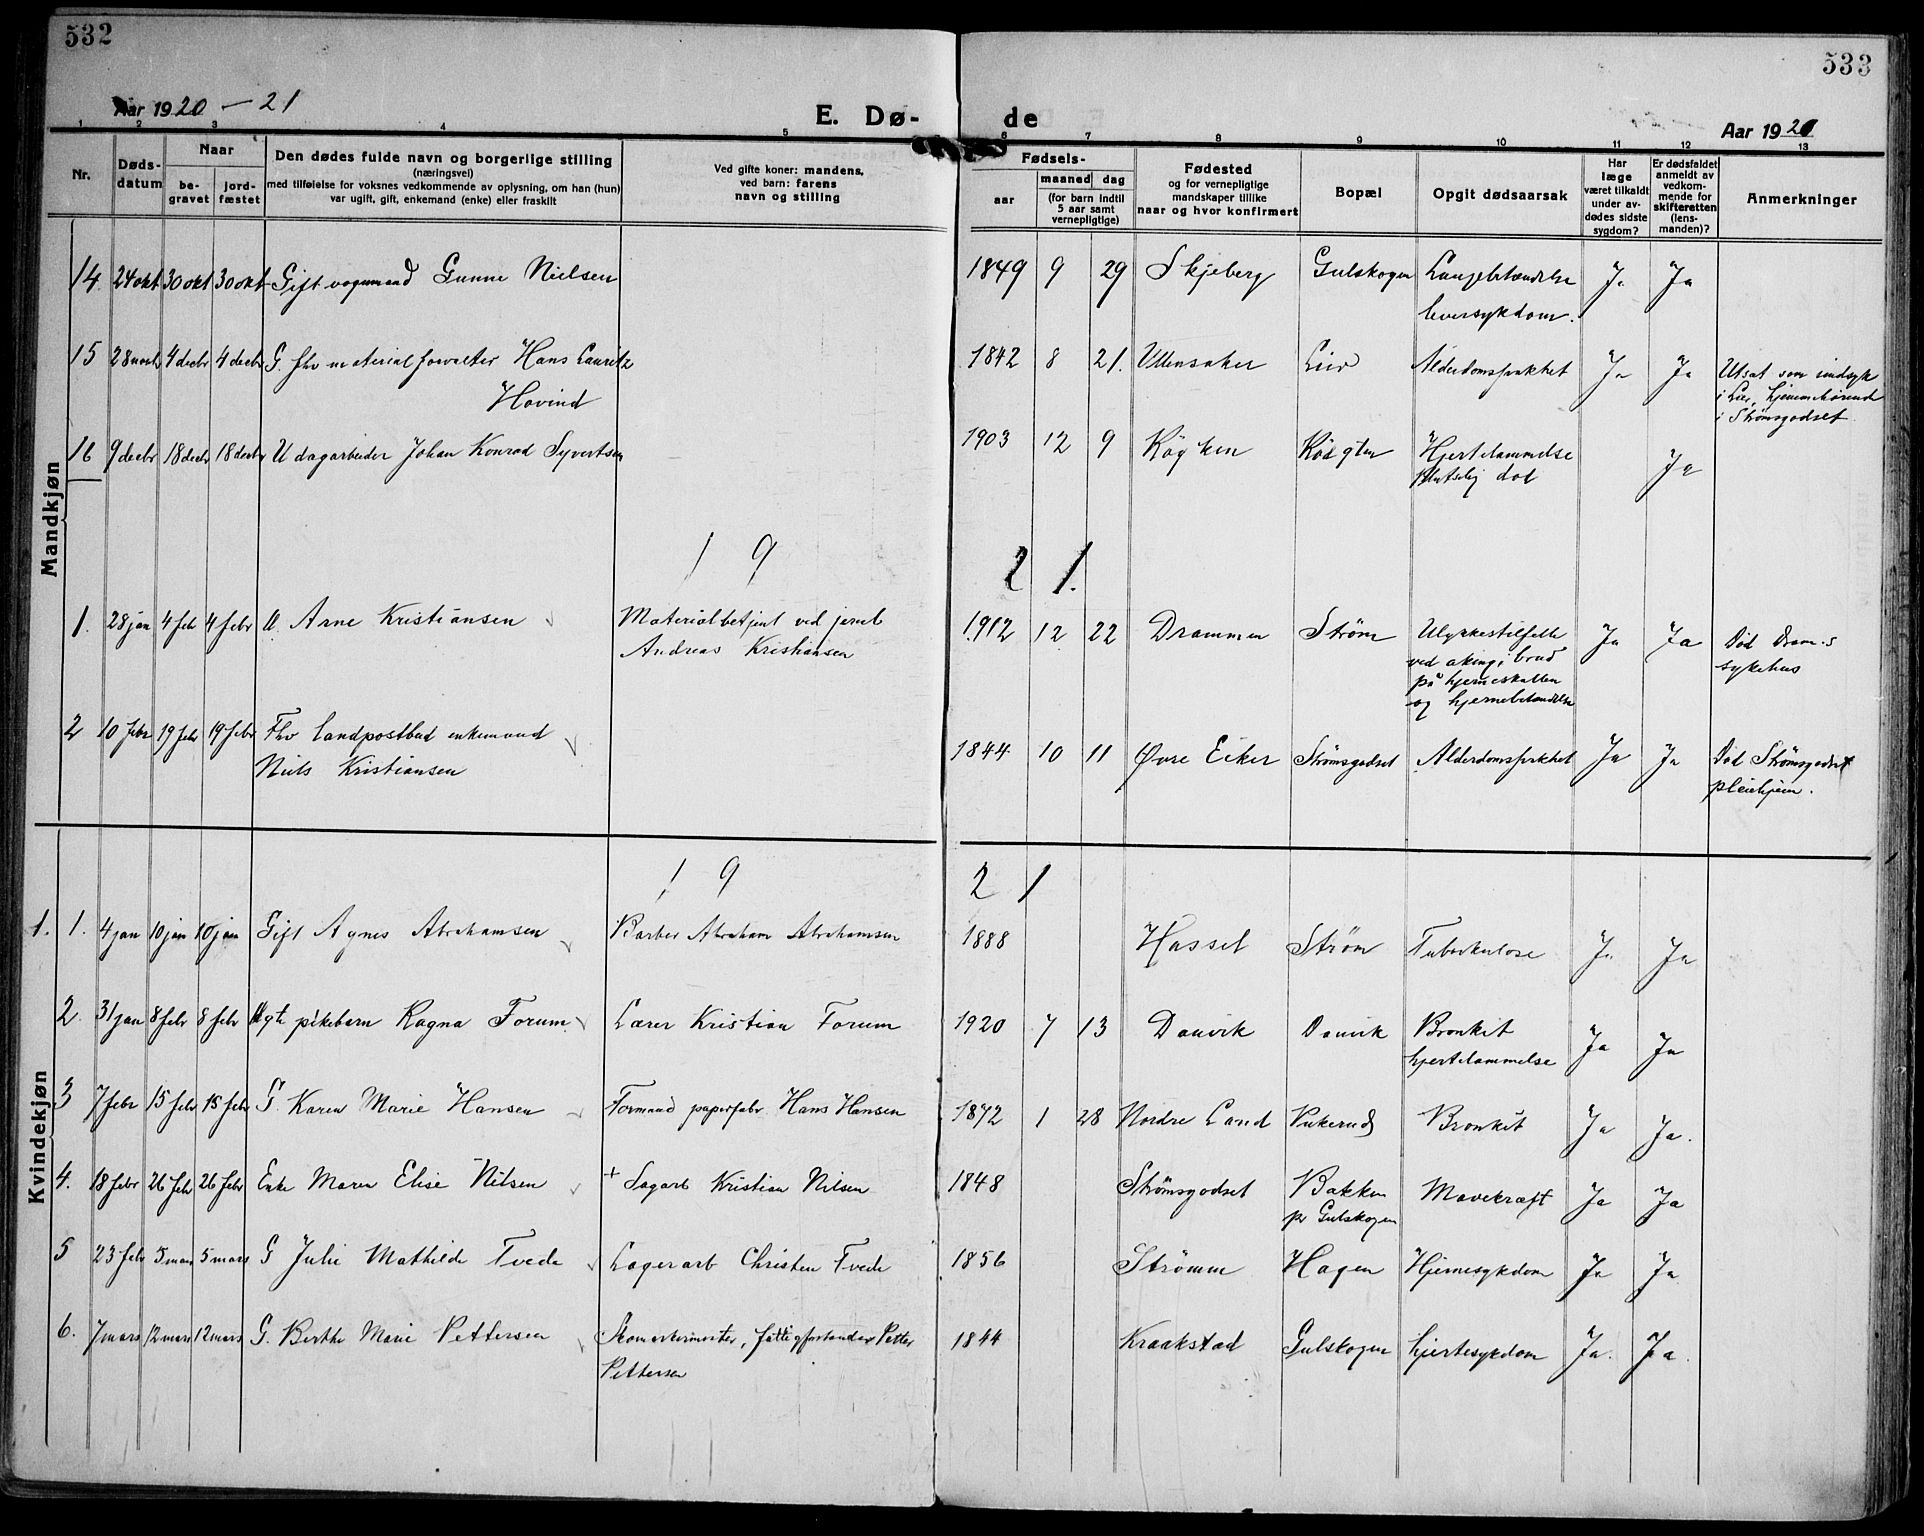 532
533
Aar 1920 – 21
E. Dø-
de
Aar 1921
1 2 3 4 5 6 7 8 9 10 11 12 13
Nr.
Døds-
datum
Naar
be-
gravet
jord-
fæstet
Den dødes fulde navn og borgerlige stilling
(næringsvei)
med tilføielse for voksnes vedkommende av oplysning, om han (hun)
var ugift, gift, enkemand (enke) eller fraskilt
Ved gifte koner: mandens,
ved barn: farens
navn og stilling
Fødsels-
aar
maaned dag
(for barn indtil
5 aar samt
vernepligtige)
Fødested
og for vernepligtige
mandskaper tillike
naar og hvor konfirmert
Bopæl
Opgit dødsaarsak
Har
læge
været tilkaldt
under av-
dødes sidste
sygdom?
Er dødsfaldet
anmeldt av
vedkom-
mende for
skifteretten
(lens-
manden)?
Anmerkninger
Mandkjøn
14 24 okt 30 okt 30 okt Gift vognmand Gunne Nielsen 1849 9 29 Skjeberg Gulskogen Lungebetændelse Ja Ja
leversykdom.
15 28 novbr 4 decbr 4 decbr G. fhv materialforvalter Hans Lauritz 1842 8 21. Ullensaker Lier Alderdomssvakhet Ja Ja Utsat som sindsyk
Hovind
i Lier, hjemmehørend
i Strømsgodset
16 9 decbr 18 decbr 18 decbr U dagarbeider Johan Konrad Syvertsen 1903 12 9 Røyken Røsgten Hjertelammelse Ja
plutselig død
1 9 2 1.
1. 28 jan 4 feb 4 febr U. Arne Kristiansen Materialbetjent ved jernb 1912 12 22 Drammen Strøm Ulykkestilfelle Ja Ja Død Dram.s
Andreas Kristiansen ved aking, brud sykehus
på hjerneskallen
og hjernebetændelse
2 10 febr 19 febr 19 febr Fhv landpostbud enkemand 1844 10 11 Øvre Eiker Strømsgodset Alderdomssvakhet Ja Ja Død Strømsgodset
Niels Kristiansen pleiehjem.
Kvindekjøn
1 9 2 1
1. 1. 4 jan 10 jan 10 jan Gift Agnes Abrahamsen Barber Abraham Abrahamsen 1888 Hassel Strøm Tuberkulose Ja Ja
2. 31 jan 8 febr 8 febr Ægte pikebarn Ragna Forum Lærer Kristian Forum 1920 7 13 Danvik Danvik Bronkit Ja Ja
hjertelammelse
3 7 febr 15 febr 15 febr G. Karen Marie Hansen Formand papirfabr. Hans Hansen 1872 1 28 Nordre Land Pukerud Bronkit Ja Ja.
4. 18 febr 26 febr 26 febr Enke Maren Elise Nilsen + Sagarb Kristian Nilsen 1848 Strømsgodset Bakken Mavekræft Ja Ja
pr Gulskogen
5 23 febr 5 mars 5 mars G Julie Mathilde Tvede Lagerarb Christen Tvede 1856 Strømm Hagen Hjernesykdom Ja Ja
6. 7 mars 12 mars 12 mars G. Berthe Marie Pettersen Skomakermester, fattigforstander Petter 1844 Kraakstad Gulskogen hjertesykdom Ja. Ja.
Pettersen